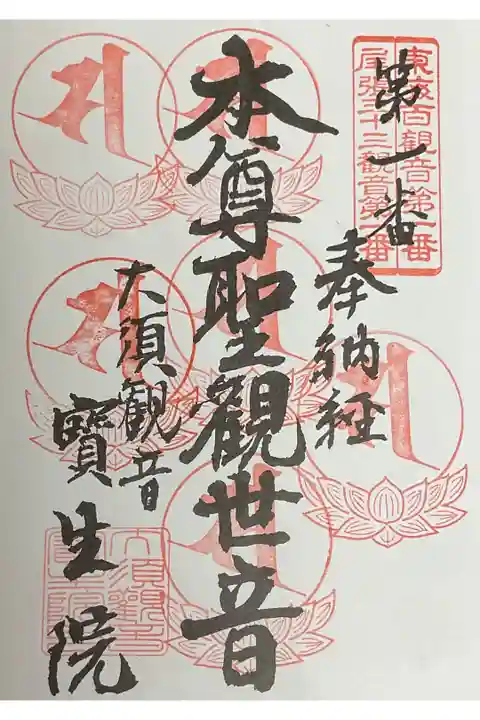 東海百観音第一番
尾張三十三観音第一番
第一番
奉納経
本尊聖観世音
大須観音
寳生院
大須觀音
寳生院